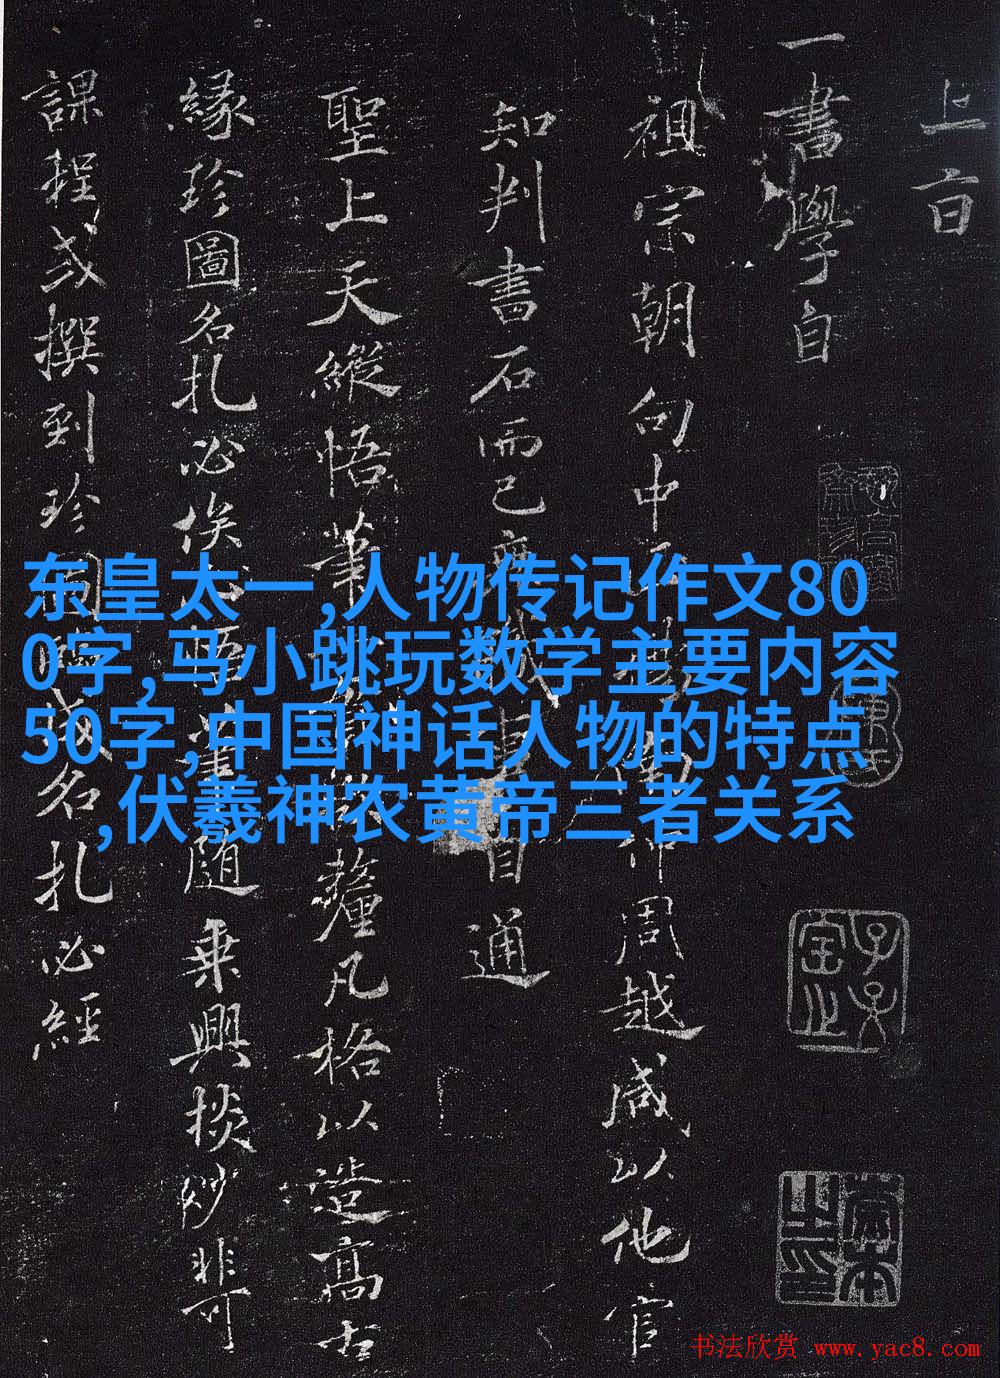 东皇太一,人物传记作文80
0字,马小跳玩数学主要内容
50字,中国神话人物的特点
,伏羲神农黄帝三者关系
上
一書學自
祖宗朝句中仲周越咸以他官
知判書石而已自通
聖上天縱悟筆釐凡格以造高古
緣珍圖名扎必俟隨乗興掞妙非可
課程或撰到珍名扎必經
书法欣赏 www.yac8.com